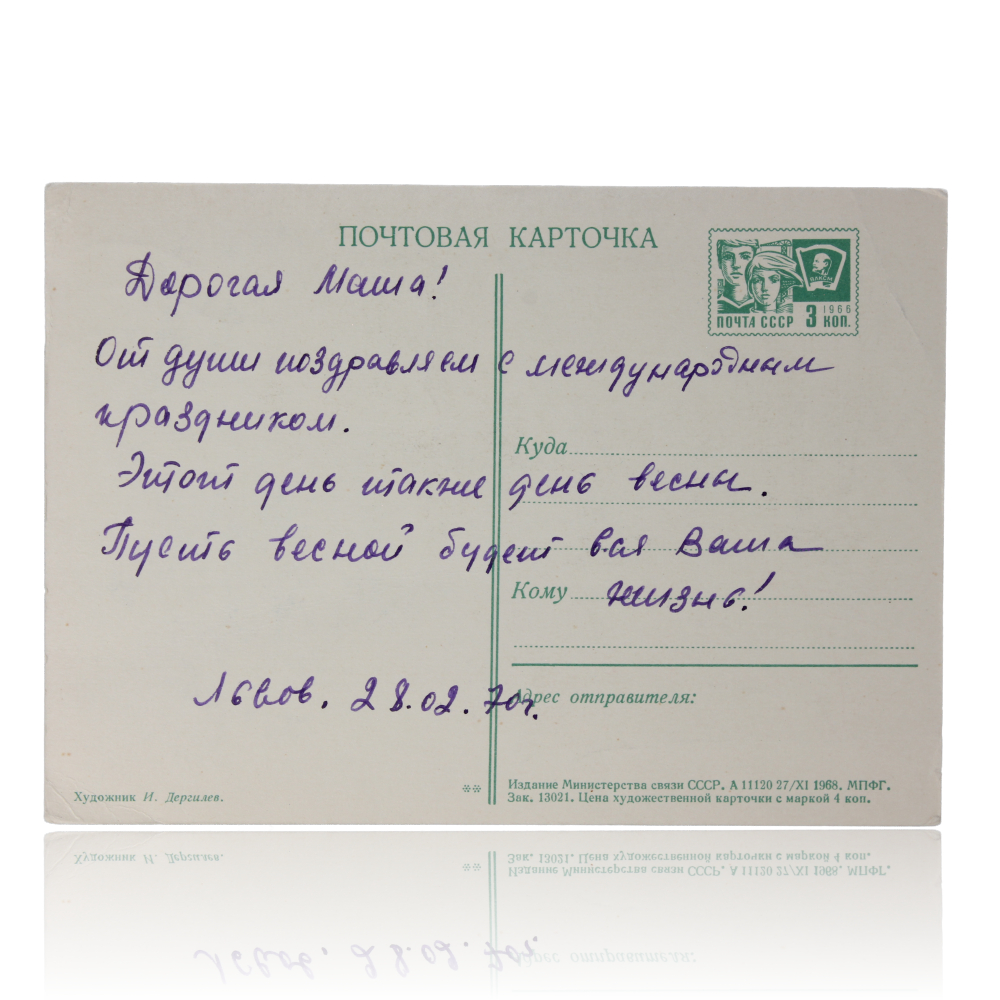 ПОЧТОВАЯ КАРТОЧКА
ВЛКСМ
1966
ПОЧТА СССР 3 КОП.
Дорогая Маша!
От души поздравляем с международным
праздником.
Этот день также день весны.
Пусть весной будет вся Ваша
жизнь!
Львов. 28.02.70г.
Куда
Кому
Адрес отправителя:
Художник И. Дергилев.
**
Издание Министерства связи СССР. А 11120 27/XI 1968. МПФГ.
Зак. 13021. Цена художественной карточки с маркой 4 коп.